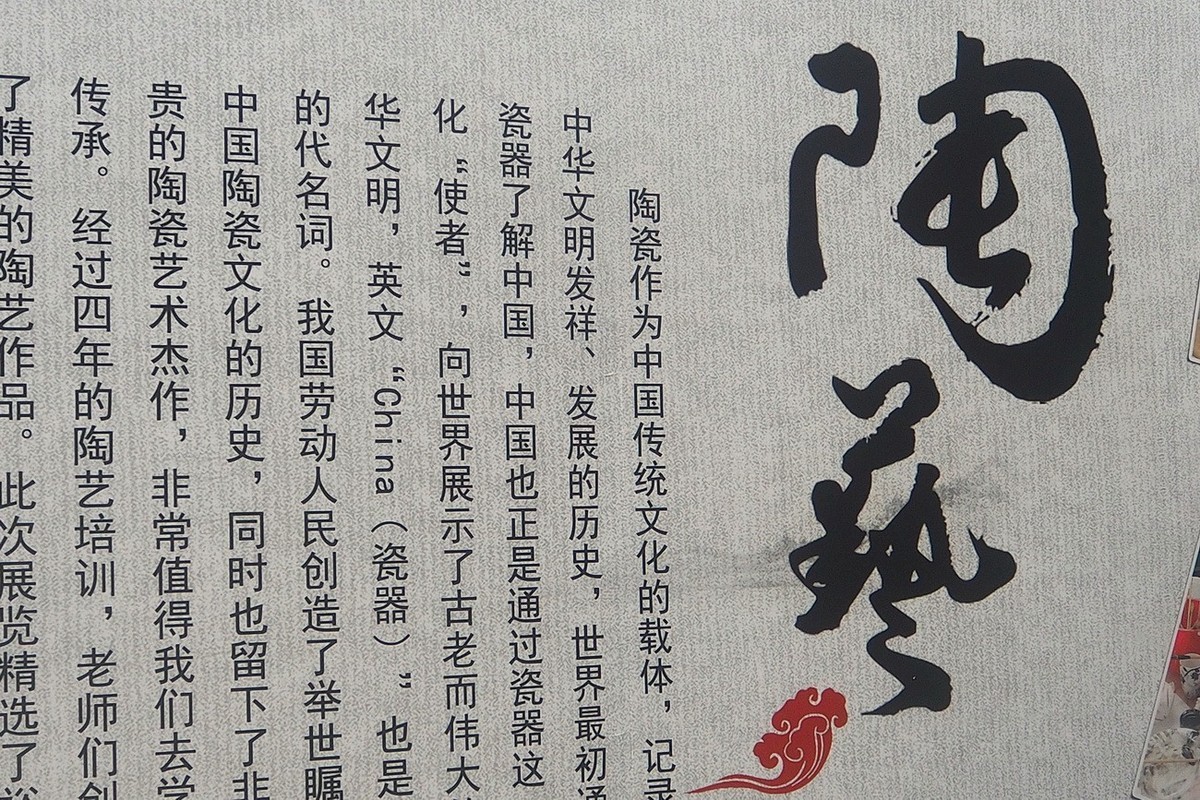 陶藝
陶瓷作为中国传统文化的载体，记录
中华文明发祥、发展的历史，世界最初通
瓷器了解中国，中国也正是通过瓷器这
化“使者”，向世界展示了古老而伟大
华文明，英文“China（瓷器）”也是
的代名词。我国劳动人民创造了举世瞩
中国陶瓷文化的历史，同时也留下了非
贵的陶瓷艺术杰作，非常值得我们去学
传承。经过四年的陶艺培训，老师们创
了精美的陶艺作品。此次展览精选了